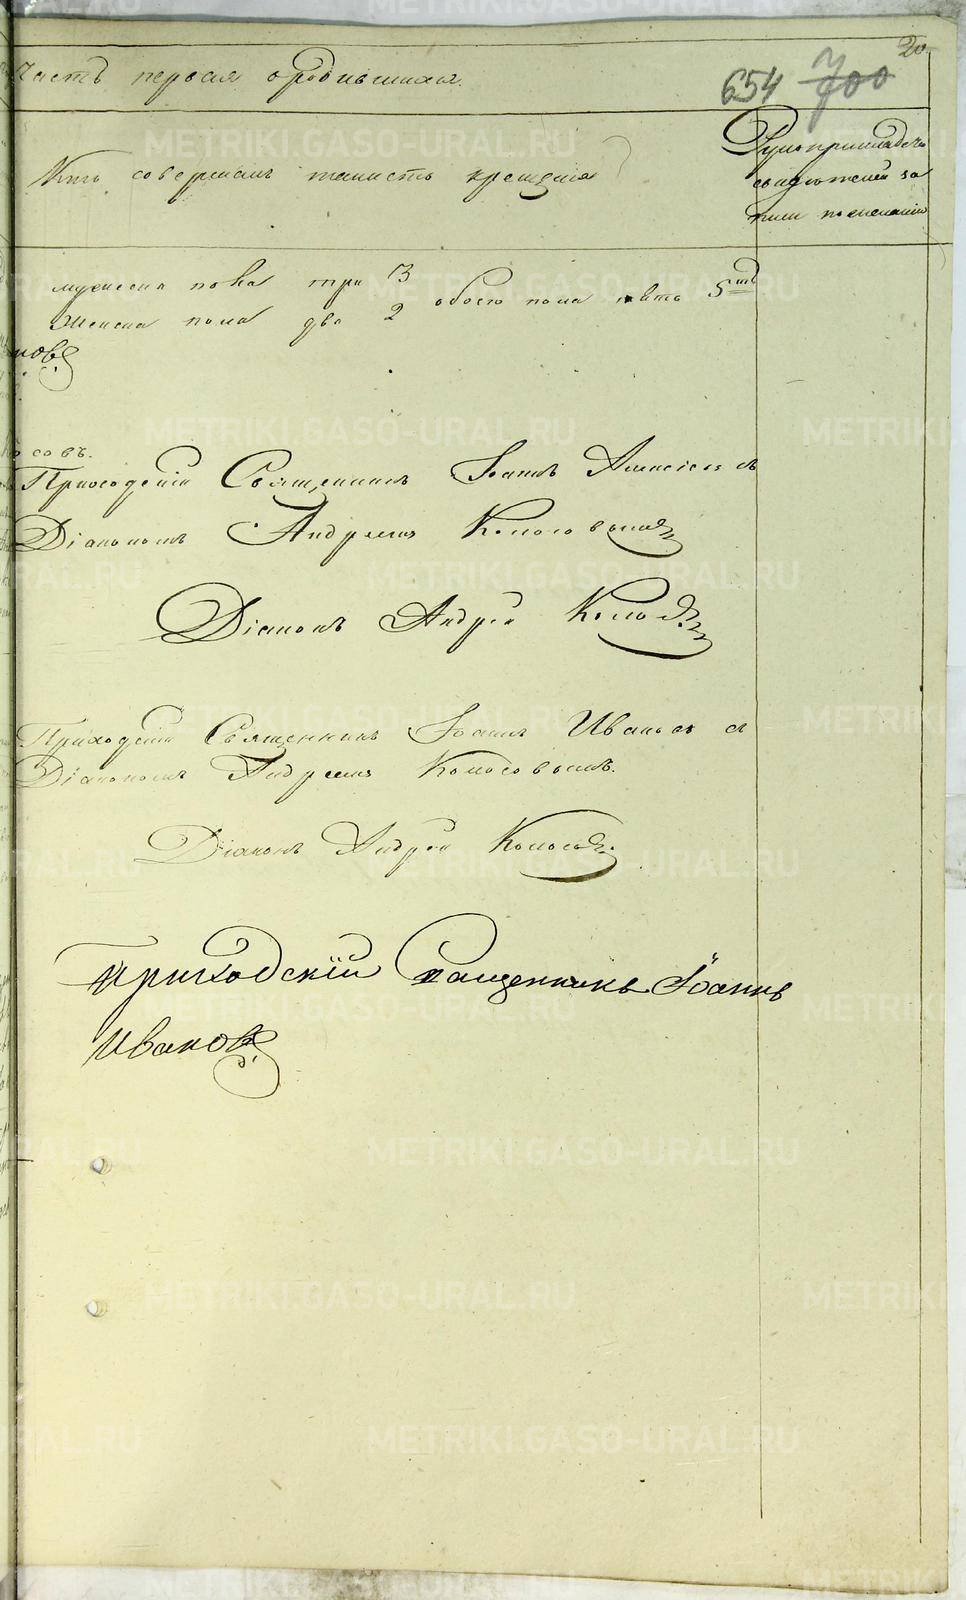 20
Часть первая о родившихся
654 700
Кто совершалъ таинство крещенія
Рукоприкладство
свидѣтелей за
писи по желанію
мужеска пола три 3
обоего пола пять 5ть
женска пола два 2
новъ
совъ.
Приходскій Священникъ Іоаннъ съ
Діакономъ Андреемъ Колосовымъ
Діаконъ Андрей Колосовъ
Приходскій Священникъ Іоаннъ Ивановъ съ
Діакономъ Андреемъ Колосовымъ.
Діаконъ Андрей Колосовъ
Приходскій Священникъ Іоаннъ
Ивановъ
METRIKI.GASO-URAL.RU